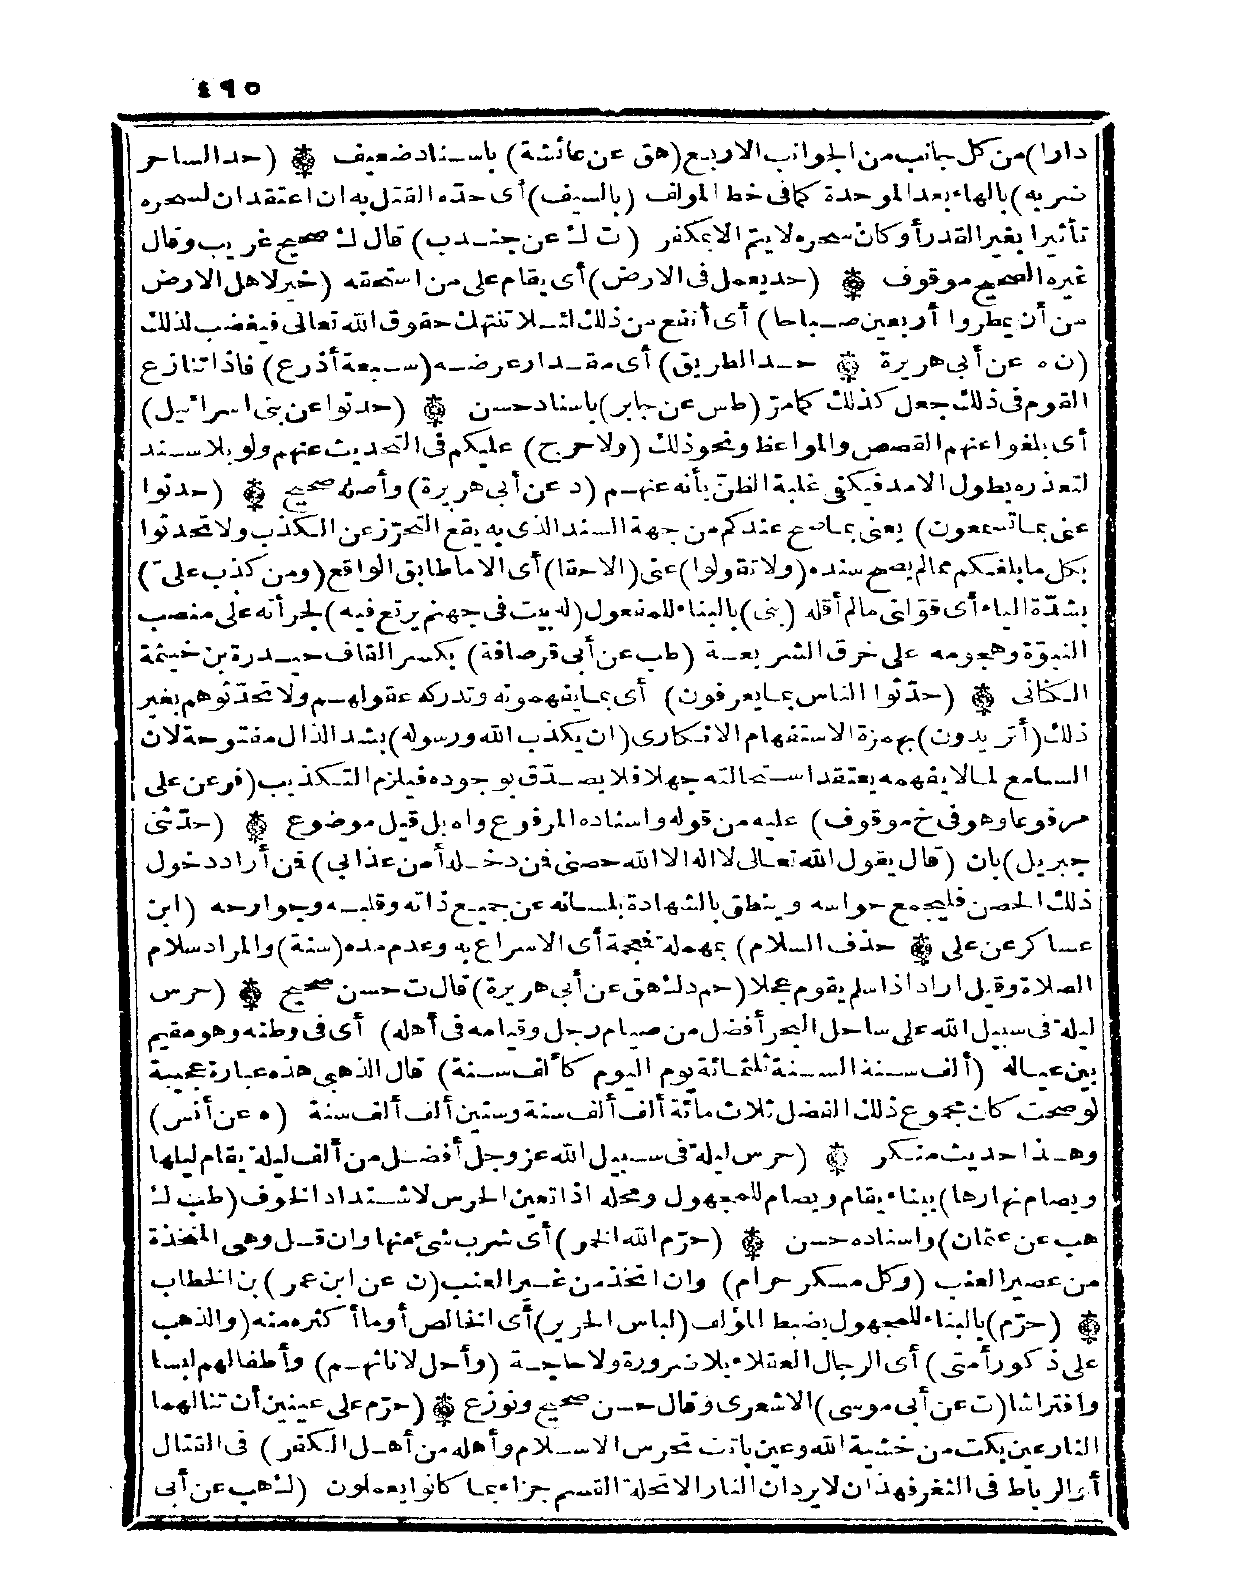 ٤٩٥
دارا) من كل جانب من الجوانب الاربع (هق عن عائشة) باسناد ضعيف ۞ (حد الساحر
ضربه) بالهاء بعد الموحدة كما فى خط المولف (بالسيف) أى حدّه القتل به ان اعتقد ان لسحره
تأثيرا بغير القدر أو كان سحره لا يتم الا بمكفر (ت ك عن جندب) قال ك صحيح غريب وقال
غيره الصحيح موقوف ۞ (حد يعمل فى الارض) أى يقام على من استحقه (خير لاهل الارض
من أن يمطروا أربعين صباحا) أى أنفع من ذلك لئلا تنتهك حقوق الله تعالى فيغضب لذلك
(ن ه عن أبى هريرة ۞ حد الطريق) أى مقدار عرضه (سبعة أذرع) فاذا تنازع
القوم فى ذلك جعل كذلك كما مرّ (طس عن جابر) باسناد حسن ۞ (حدثوا عن بنى اسرائيل)
أى بلغوا عنهم القصص والمواعظ ونحو ذلك (ولا حرج) عليكم فى التحديث عنهم ولو بلا سند
لتعذره بطول الامد فيكفى غلبة الظنّ بأنه عنهم (د عن أبى هريرة) وأصله صحيح ۞ (حدثوا
عنى بما تسمعون) يعنى بما صح عندكم من جهة السند الذى به يقع التحرّز عن الكذب ولا تحدثوا
بكل ما بلغكم مما لم يصح سنده (ولا تقولوا) عنى (الا حقا) أى الا ما طابق الواقع (ومن كذب علىّ)
بشدّة الياء أى قوّلنى ما لم أقله (بنى) بالبناء للمفعول (له بيت فى جهنم يرتع فيه) لجرأته على منصب
النبوّة وهجومه على خرق الشريعة (طب عن أبى قرصافة) بكسر القاف حيدرة بن خيثمة
الكنانى ۞ (حدّثوا الناس بما يعرفون) أى بما يفهمونه وتدركه عقولهم ولا تحدّثوهم بغير
ذلك (أتريدون) بهمزة الاستفهام الانكارى (ان يكذب الله ورسوله) بشد الذال مفتوحة لان
السامع لما لا يفهمه يعتقد استحالته جهلا فلا يصدّق بوجوده فيلزم التكذيب (فر عن على
مرفوعا وهو فى خ موقوف) عليه من قوله واسناده المرفوع واه بل قيل موضوع ۞ (حدّثنى
جبريل) بان (قال يقول الله تعالى لا اله الا الله حصنى فمن دخله أمن عذابى) فمن أراد دخول
ذلك الحصن فليجمع حواسه وينطق بالشهادة بلسانه عن جميع ذاته وقلبه وجوارحه (ابن
عساكر عن على ۞ حذف السلام) بمهملة فمعجمة أى الاسراع به وعدم مده (سنة) والمراد سلام
الصلاة وقيل اراد اذا سلم يقوم عجلا (حم د ك هق عن أبى هريرة) قال ت حسن صحيح ۞ (حرس
ليلة فى سبيل الله على ساحل البحر أفضل من صيام رجل وقيامه فى أهله) أى فى وطنه وهو مقيم
بين عياله (ألف سنة السنة ثلثمائة يوم اليوم كألف سنة) قال الذهبى هذه عبارة عجيبة
لو صحت كان مجموع ذلك الفضل ثلاث مائة ألف ألف سنة وستين ألف ألف سنة (ه عن أنس)
وهذا حديث منكر ۞ (حرس ليلة فى سبيل الله عز وجل أفضل من ألف ليلة يقام ليلها
ويصام نهارها) ببناء يقام ويصام للمجهول ومحله اذا تعين الحرس لاشتداد الخوف (طب ك
هب عن عثمان) واسناده حسن ۞ (حرّم الله الخمر) أى شرب شئ منها وان قل وهى المتخذة
من عصير العنب (وكل مسكر حرام) وان اتخذ من غير العنب (ن عن ابن عمر) بن الخطاب
۞ (حرّم) بالبناء للمجهول بضبط المؤلف (لباس الحرير) أى الخالص أو ما أكثره منه (والذهب
على ذكور أمتى) أى الرجال العقلاء بلا ضرورة ولا حاجة (وأحل لاناثهم) وأطفالهم لبسا
وافتراشا (ت عن أبى موسى) الاشعرى وقال حسن صحيح ونوزع ۞ (حرّم على عينين أن تنالهما
النار عين بكت من خشية الله وعين باتت تحرس الاسلام وأهله من أهل الكفر) فى القتال
أو الرباط فى الثغر فهذان لا يردان النار الا تحلة القسم جزاء بما كانوا يعملون (ك هب عن أبى